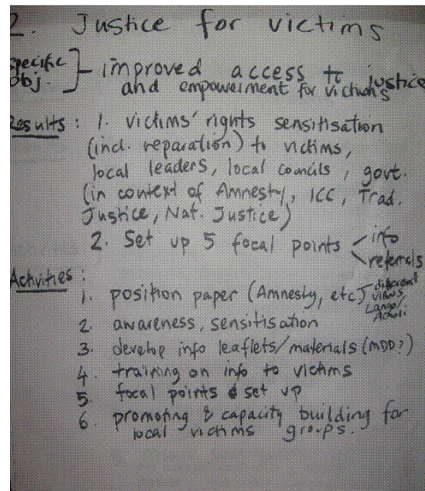 2. Justice for victims
specific obj. - improved access to justice
and empowerment for victims
Results: 1. victims' rights sensitisation
(incl. reparation) to victims,
local leaders, local councils, govt.
(in context of Amnesty, ICC, Trad.
Justice, Nat. Justice)
2. Set up 5 focal points - info
referrals
Activities:
1. position paper (Amnesty, etc) different
views,
Lango/
Acholi
2. awareness, sensitisation
3. develop info leaflets/materials (MDD?)
4. training on info to victims
5. focal points set up
6. promoting & capacity building for
local victims groups.